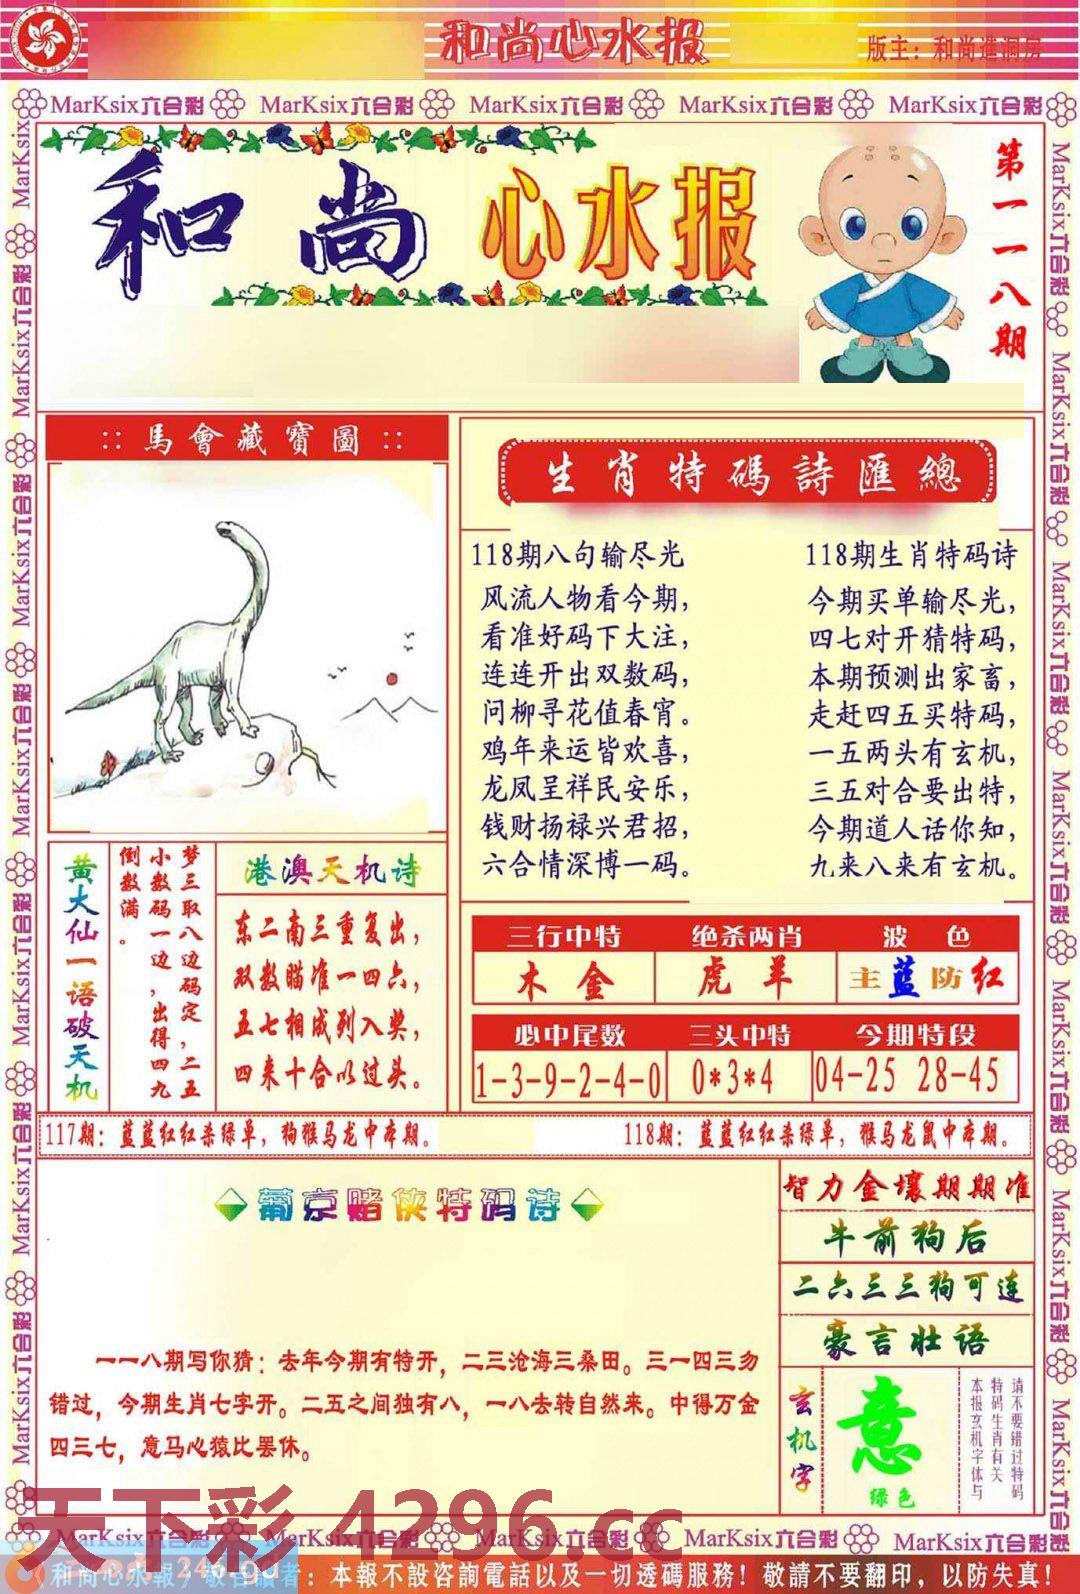 和尚心水报
版主：和尚進洞房
MarKsix六合彩 MarKsix六合彩 MarKsix六合彩 MarKsix六合彩 MarKsix六合彩
和尚心水报
第一一八期
馬會藏寶圖
生肖特碼詩匯總
118期八句输尽光
风流人物看今期，
看准好码下大注，
连连开出双数码，
问柳寻花值春宵。
鸡年来运皆欢喜，
龙凤呈祥民安乐，
钱财扬禄兴君招，
六合情深博一码。
118期生肖特码诗
今期买单输尽光，
四七对开猜特码，
本期预测出家畜，
走赶四五买特码，
一五两头有玄机，
三五对合要出特，
今期道人话你知，
九来八来有玄机。
黄大仙一语破天机
梦三取八边码定，二五
小数码一边，出得四九
倒数满。
港澳天机诗
东二南三重复出，
双数瞄准一四六，
五七相成列入奖，
四来十合以过头。
三行中特 绝杀两肖 波色
木金 虎羊 主蓝防红
必中尾数 三头中特 今期特段
1-3-9-2-4-0 0*3*4 04-25 28-45
117期：蓝蓝红红杀绿单，狗猴马龙中本期。
118期：蓝蓝红红杀绿单，猴马龙鼠中本期。
葡京赌侠特码诗
一一八期写你猜：去年今期有特开，二三沧海三桑田。三一四三勿
错过，今期生肖七字开。二五之间独有八，一八去转自然来。中得万金
四三七，意马心猿比罢休。
智力金壤期期准
牛前狗后
二六三三狗可连
豪言壮语
玄机字
意
绿色
请不要错过特码
特码生肖有关
本报玄机字体与
天下彩 4296.cc
MarKsix六合彩 MarKsix六合彩 MarKsix六合彩 MarKsix六合彩 MarKsix六合彩
246.gd
和尚心水報敬告讀者：本報不設咨詢電話以及一切透碼服務！敬請不要翻印，以防失真！